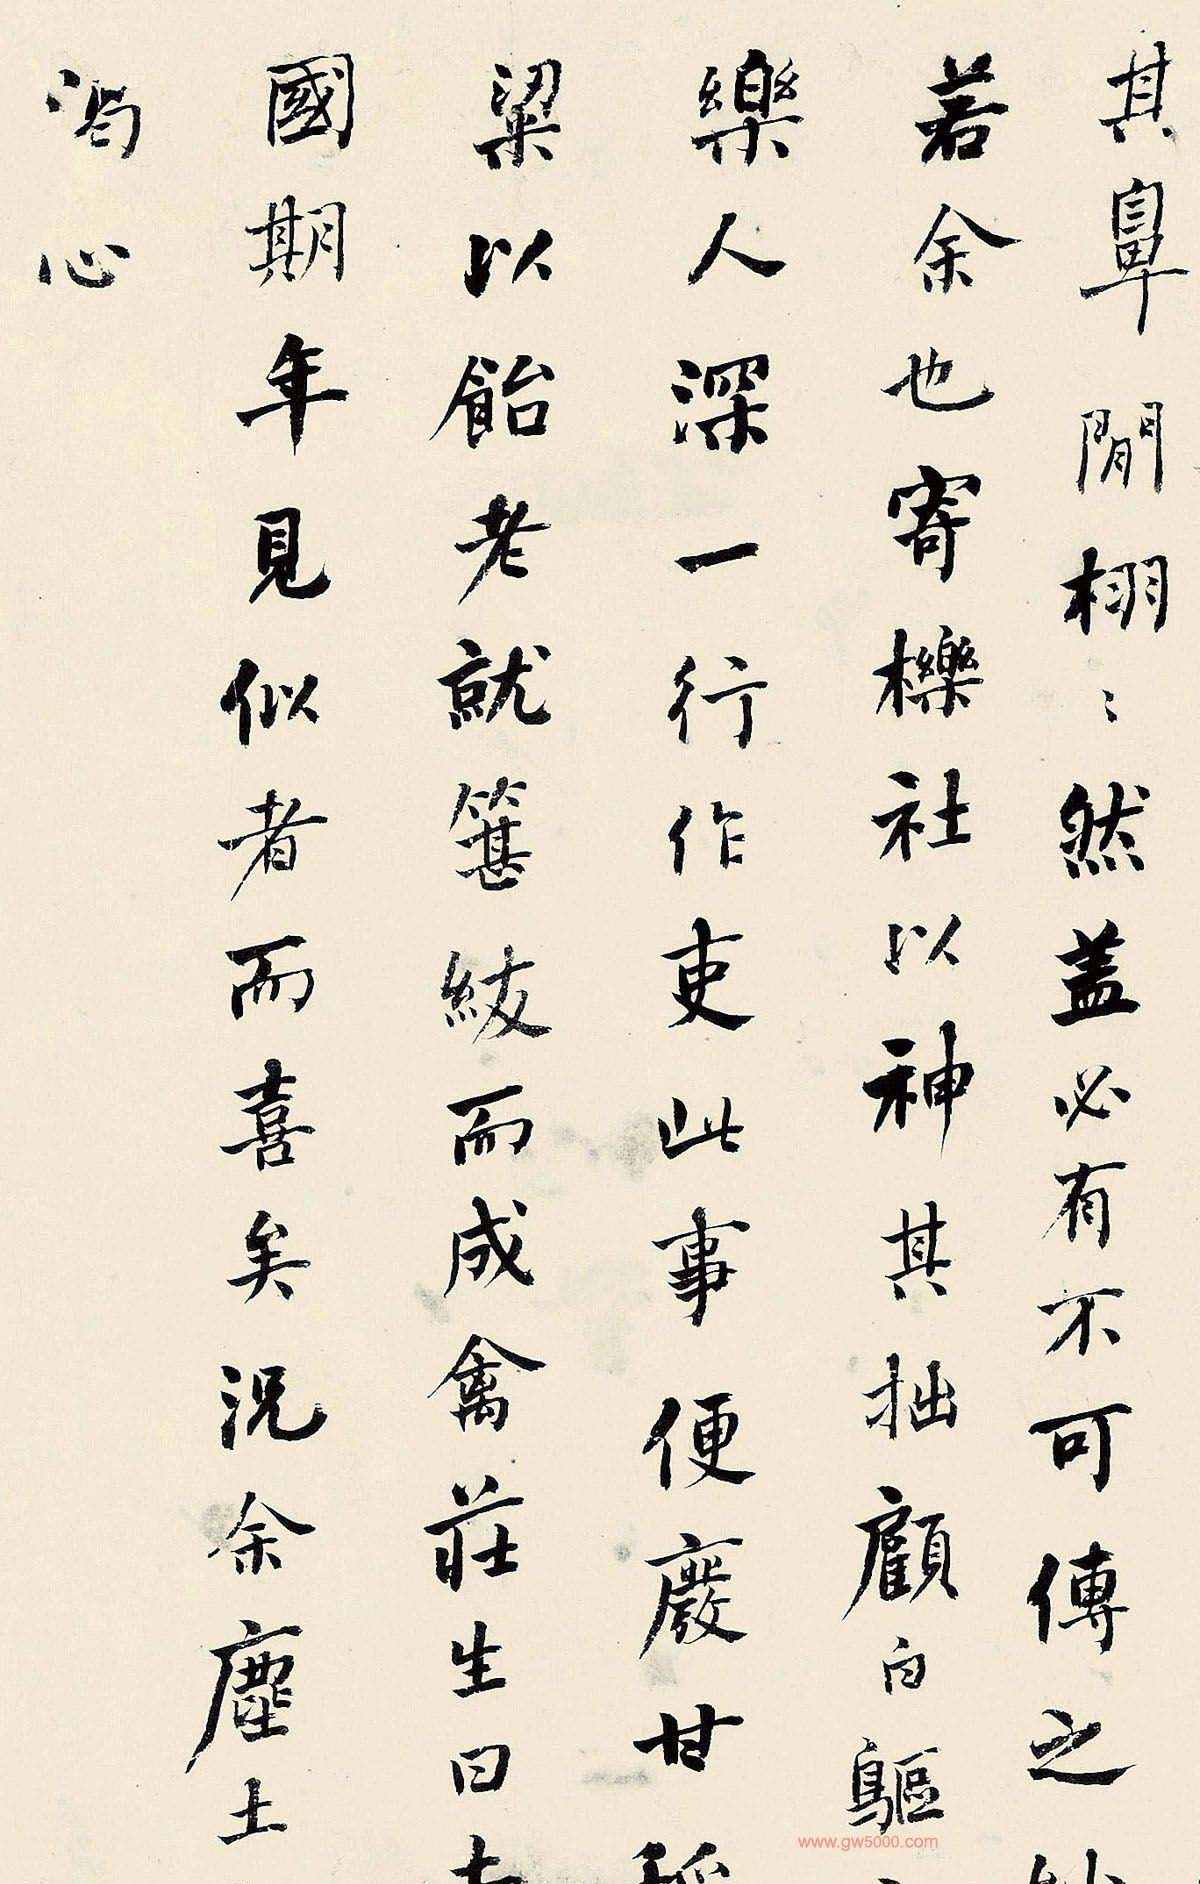 其鼻間栩〻然盖必有不可傳之
若余也寄櫟社以神其拙顧白驅
樂人深一行作吏此事便廢甘
粱以飴老就簪紱而成禽莊生曰去
國期年見似者而喜矣況余塵土
渴心
www.gw5000.com